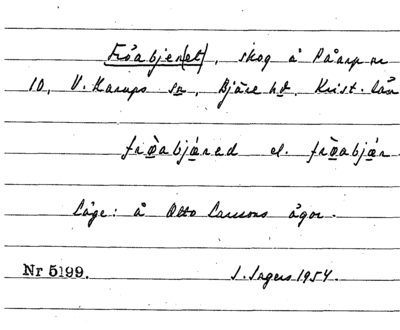 Fröabjer(et), skog å Påarp nr
10, V. Karups sn, Bjäre hd. Krist. län
fròabjǽred el. fròabjǽr.
Läge: å Otto Larssons ägor.
Nr 5199. I. Ingers 1954.